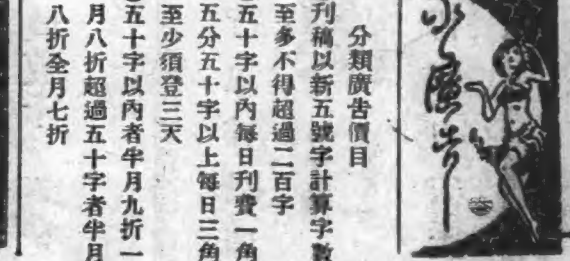 廣告
分類廣告價目
刊稿以新五號字計算字數
至多不得超過二百字
五十字以內每日刊費一角
五分五十字以上每日三角
至少須登三天
五十字以內者半月九折一
月八折超過五十字者半月
八折全月七折